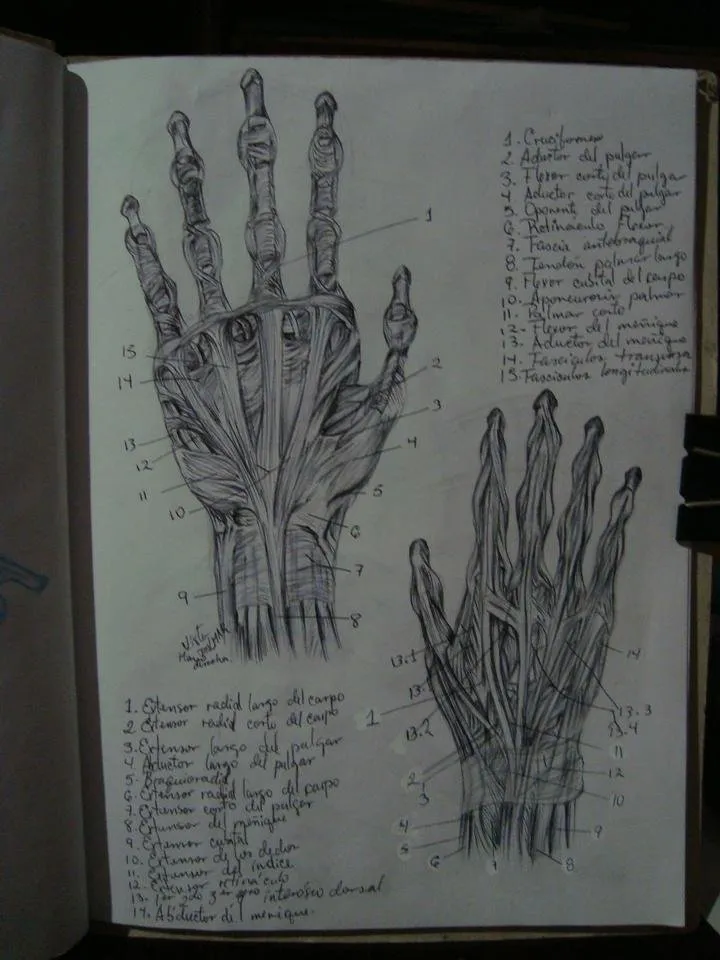 1. Cruciformes
2. Aductor del pulgar
3. Flexor corto del pulgar
4. Aductor corto del pulgar
5. Oponente del pulgar
6. Retináculo Flexor
7. Fascia antebraquial
8. Tendón palmar largo
9. Flexor cubital del carpo
10. Aponeurosis palmar
11. Palmar corto
12. Flexor del meñique
13. Aductor del meñique
14. Fascículos transversa
15. Fascículos longitudinales
1
15
14
2
13
3
12
4
11
5
10
6
7
9
8
Vista
PALMAR
Mano
derecha.
13.1
14
13.
13.3
1
13.4
13.2
11
2
12
3
10
4
9
5
6
7
8
1. Extensor radial largo del carpo
2. Extensor radial corto del carpo
3. Extensor largo del pulgar
4. Aductor largo del pulgar
5. Braquioradial
6. Extensor radial largo del carpo
7. Extensor corto del pulgar
8. Extensor del meñique
9. Extensor cubital
10. Extensor de los dedos
11. Extensor del índice
12. Extensor retináculo
13. 1er 2do 3er interóseo dorsal
14. Abductor del meñique.